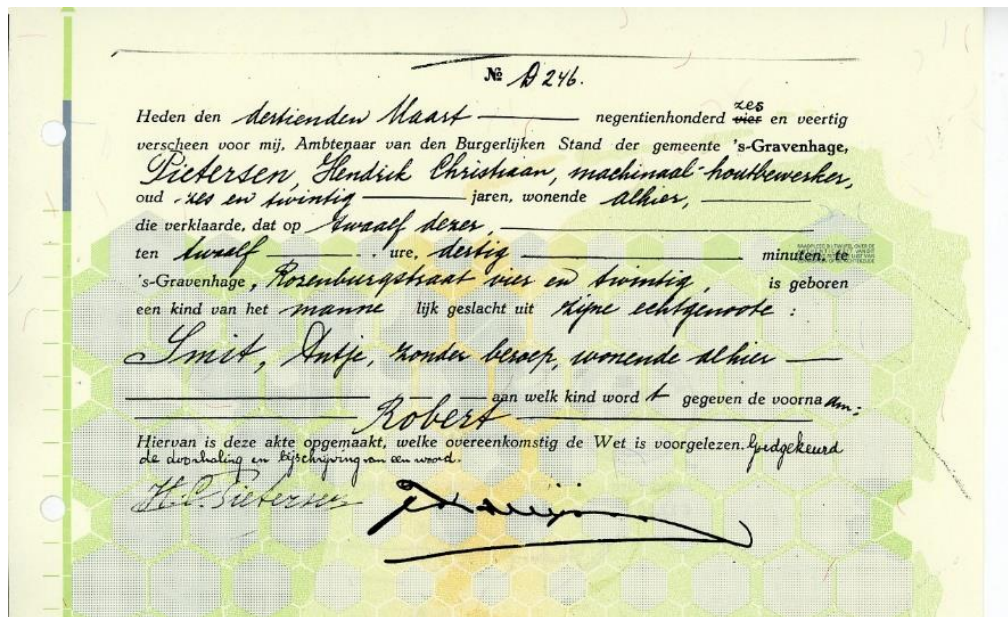 № D 246.
zes
Heden den dertienden Maart negentienhonderd vier en veertig
verscheen voor mij, Ambtenaar van den Burgerlijken Stand der gemeente 's-Gravenhage,
Pietersen, Hendrik Christiaan, machinaal-houtbewerker,
oud zes en twintig jaren, wonende alhier,
die verklaarde, dat op twaalf dezer,
ten twaalf ure, dertig minuten, te
's-Gravenhage, Rozenburgstraat vier en twintig, is geboren
een kind van het manne lijk geslacht uit zijne echtgenoote :
Smit, Antje, zonder beroep, wonende alhier
aan welk kind word t gegeven de voorna am:
Robert
Hiervan is deze akte opgemaakt, welke overeenkomstig de Wet is voorgelezen. Goedgekeurd
de doorhaling en bijschrijving van een woord.
H.C. Pietersen